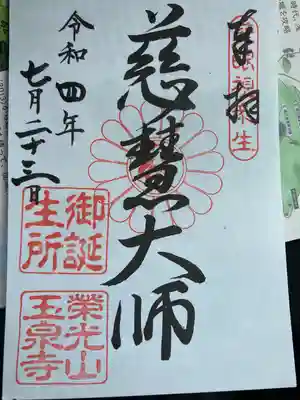 奉拝
慈眼視衆生
慈慧大師
令和四年
七月二十三日
御誕
生所
榮光山
玉泉寺